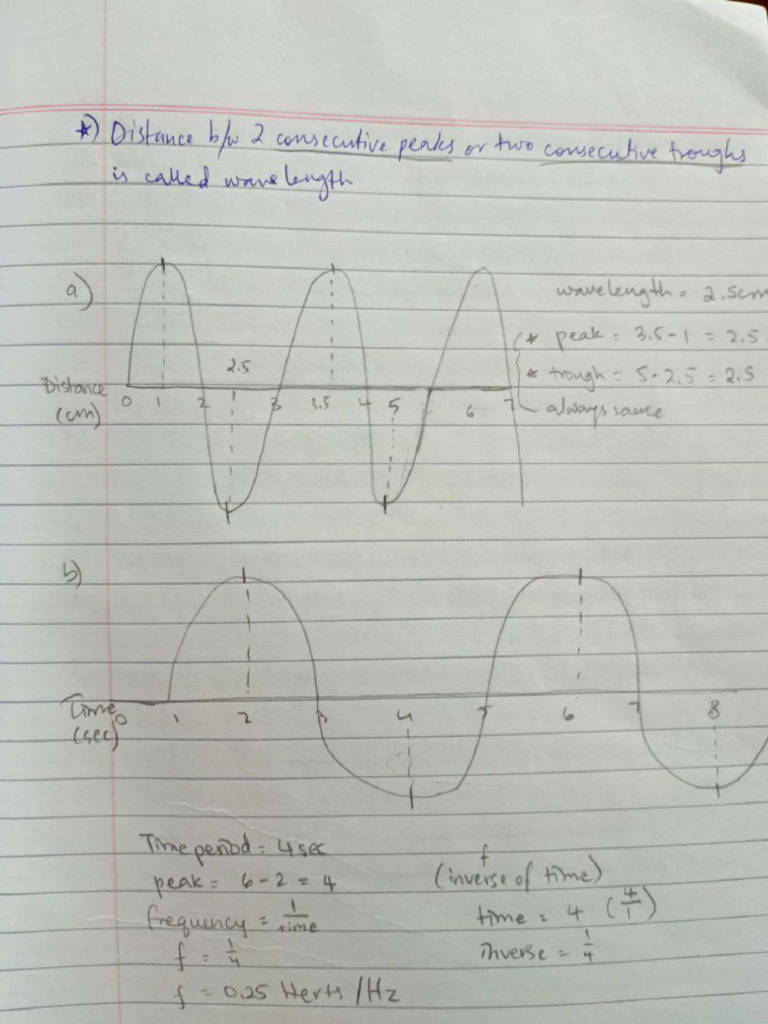 *) Distance b/w 2 consecutive peaks or two consecutive troughs
is called wavelength
a)
wavelength = 2.5cm
* peak = 3.5-1 = 2.5
2.5
* trough = 5-2.5 = 2.5
Distance
(cm)
0 1 2 3 3.5 4 5 6 7
always same
b)
Time
(sec)
0 1 2 3 4 5 6 7 8
Time period = 4sec
peak = 6-2 = 4
frequency = 1/time
f = 1/4
f = 0.25 Herts /Hz
f
(inverse of time)
time = 4 (4/1)
inverse = 1/4